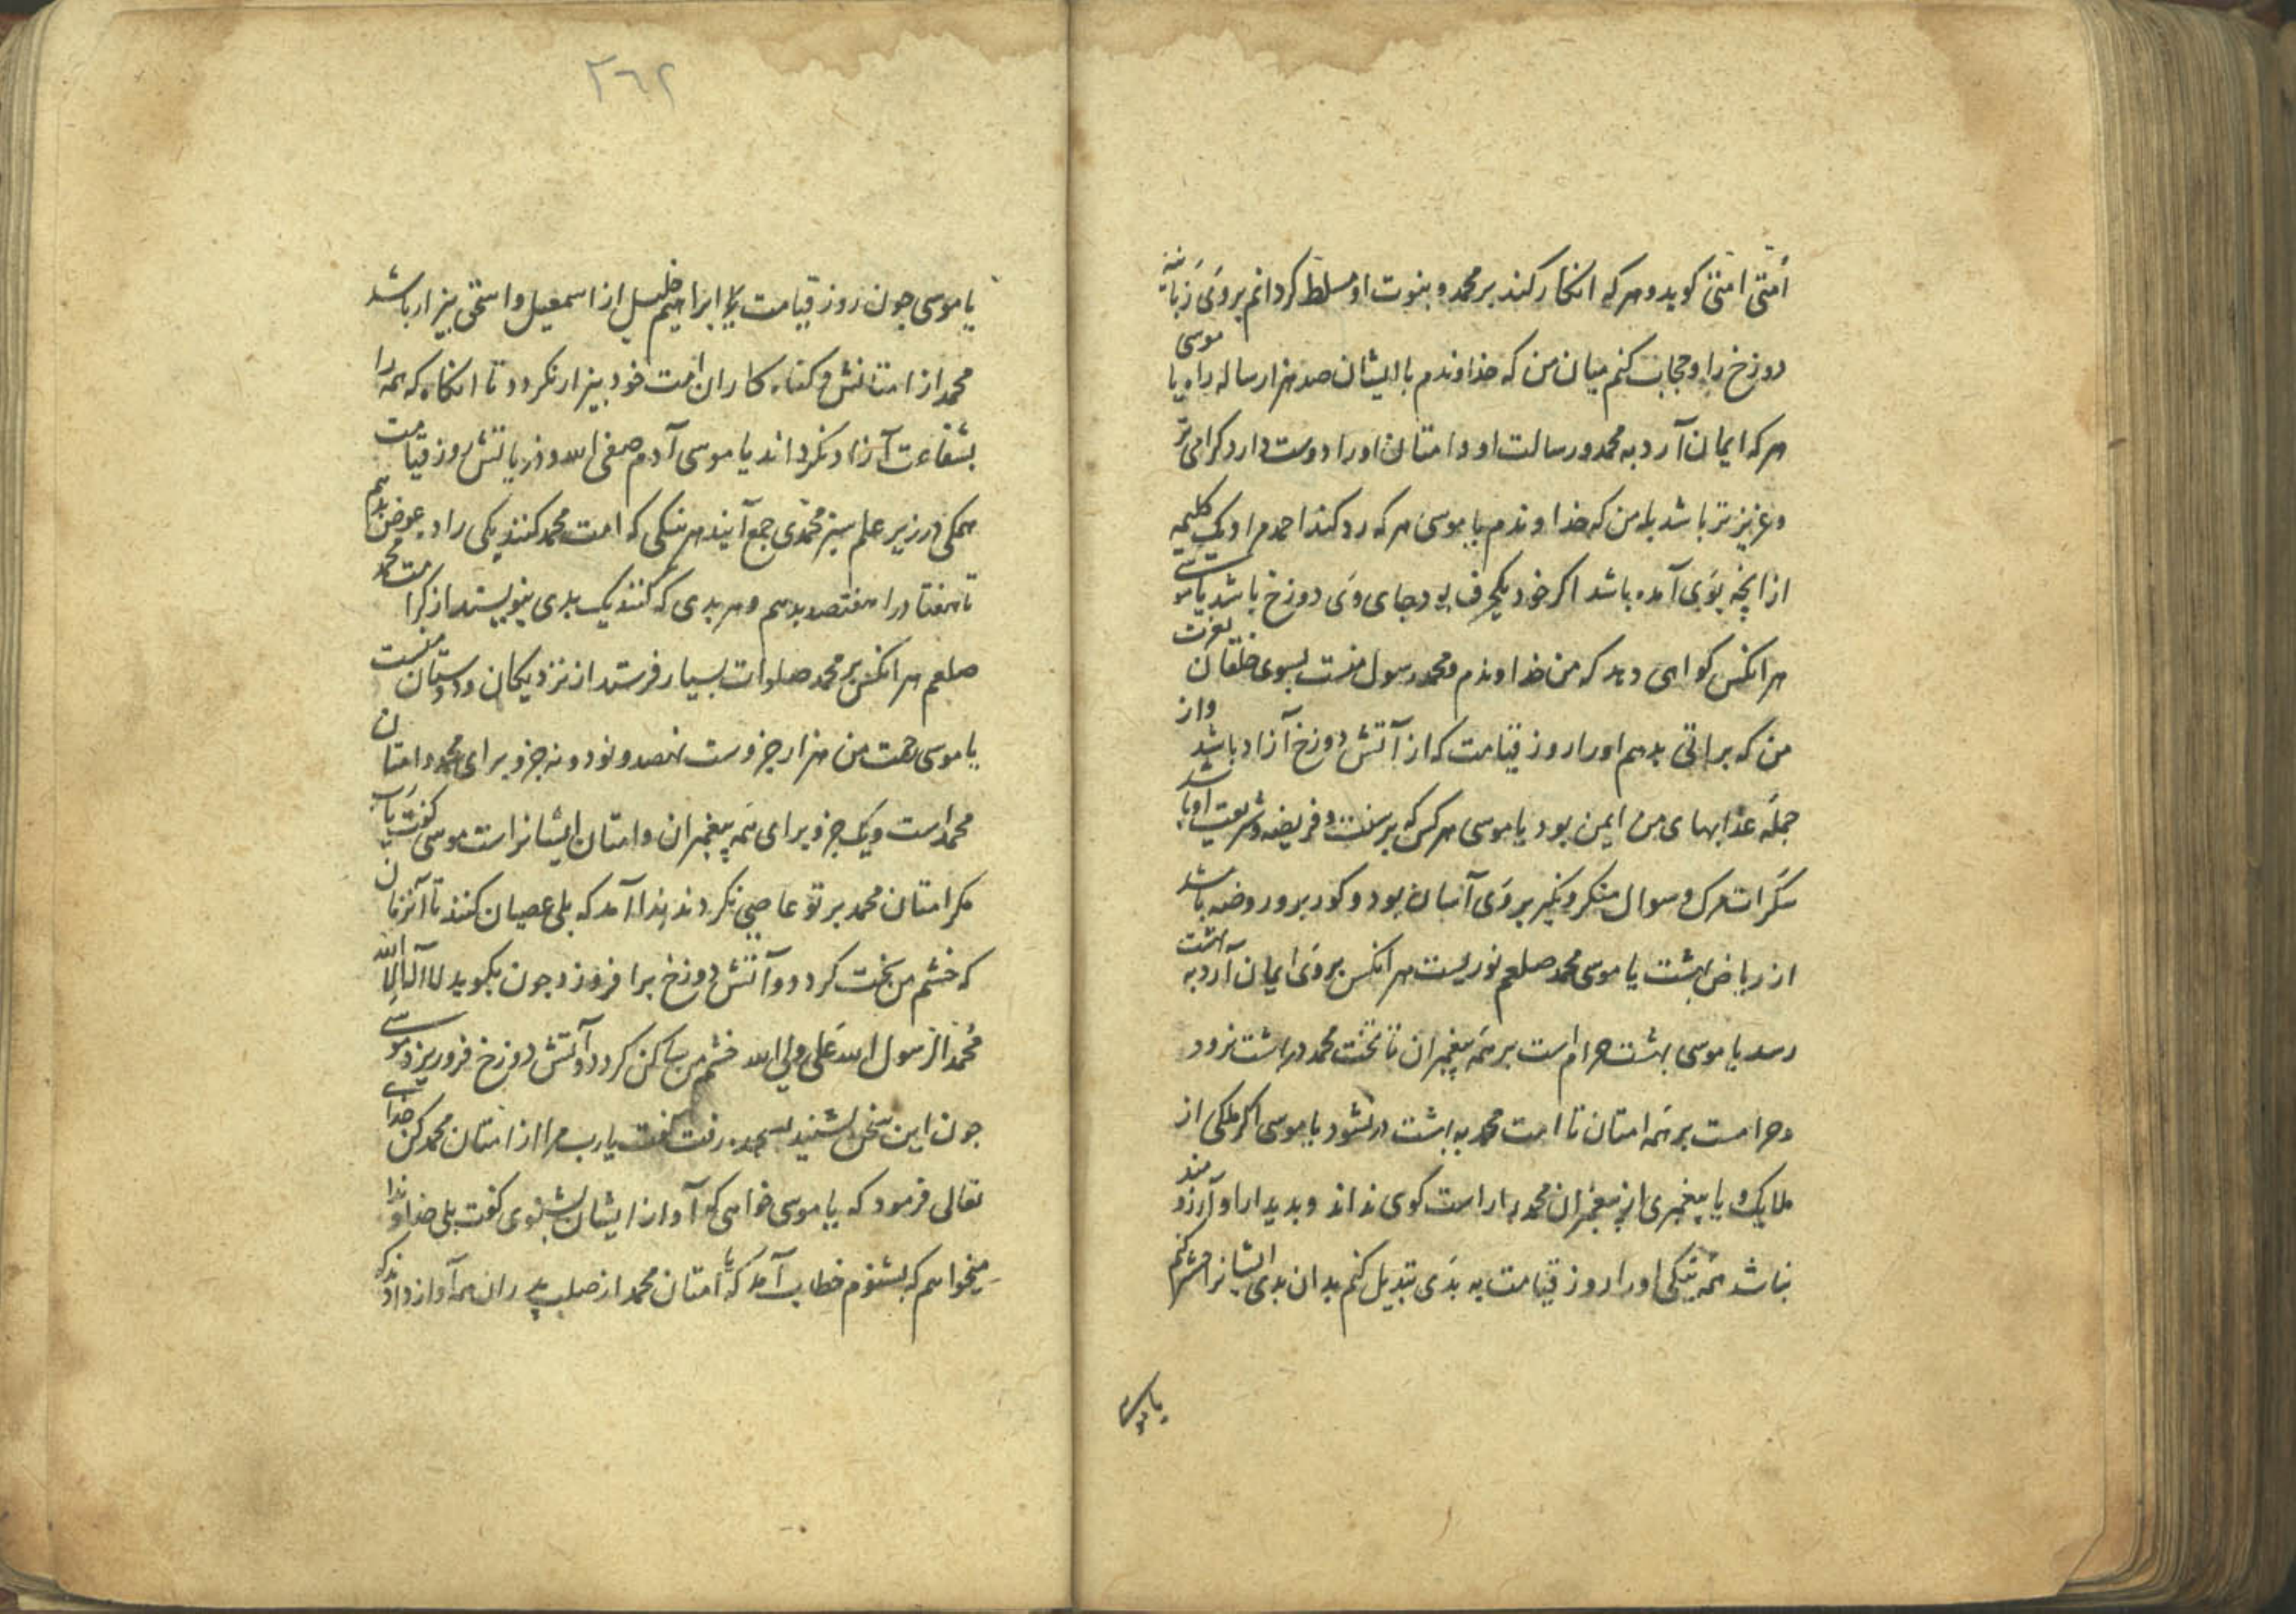 امتی امتی کوید و هر که انکار کند بر محمد و بنبوت او مسلط کردانم بر وی زبانیه
دوزخ را و حجاب کنم میان من که خداوندم با ایشان صد هزار ساله راه یا موسی
هر که ایمان آرد به محمد و رسالت او و امتان او را دوست دارد کرامی تر
و عزیزتر باشد بر من که خداوندم یا موسی هر که رد کند احمد را و یک کلیمه
از انچه بوی آمده باشد اکر خود یکحرف بود جای وی دوزخ باشد یا موسی
هر انکس کواهی دهد که من خداوندم و محمد رسول منست بسوی خلقان بعزت
من که براتی بدهم او را روز قیامت که از آتش دوزخ آزاد باشد و از
جمله عذابهای من ایمن بود یا موسی هر کس که بر سنت و فریضه و شریعت او باشد
سکرات مرک و سوال منکر و نکیر بر وی آسان بود و کور برو روضه باشد
از ریاض بهشت یا موسی محمد صلعم نوریست هر انکس بر وی ایمان آرد به بهشت
رسد یا موسی بهشت حرام است بر همه پیغمبران تا نخست محمد در بهشت نرود
و حرامست بر همه امتان تا امت محمد به بهشت در نشود یا موسی اکر ملکی از
ملایک و یا پیغمبری از پیغمبران محمد را راست کوی نداند و بدیدار او آرزومند
نباشد همه نیکی او را روز قیامت به بدی تبدیل کنم بدان بدی ایشانرا حشر کنم
یا موسی
۲۶۲
یا موسی چون روز قیامت ابراهیم خلیل از اسمعیل و اسحق بیزار باشد
محمد از امتانش و کناه کاران امت خود بیزار نکردد تا انکاه که همه را
بشفاعت آزاد نکرداند یا موسی آدم صفی الله و ذریاتش روز قیامت
همکی در زیر علم سبز محمدی جمع آیند هر نیکی که امت محمد کنند یکی را ده عوض بدهم
تا هفتاد را هفتصد بدهم و هر بدی که کنند یک بدی بنویسند از کرامت محمد
صلعم هر انکس بر محمد صلوات بسیار فرستد از نزدیکان و دوستان منست
یا موسی رحمت من هزار جزوست نهصد و نود و نه جزو برای محمد و امتان
محمد است و یک جزو برای همه پیغمبران و امتان ایشانراست موسی کفت یا رب
مکر امتان محمد بر تو عاصی نکردند ندا آمد که بلی عصیان کنند تا آنزمان
که خشم من سخت کردد و آتش دوزخ بر افروزد چون بکوید لا اله الا الله
محمد الرسول الله علی ولی الله خشم من ساکن کردد و آتش دوزخ فروریزد موسی
چون این سخن بشنید بسجده رفت کفت یارب مرا از امتان محمد کن خدای
تعالی فرمود که یا موسی خواهی که آواز ایشان بشنوی کفت بلی خداوندا
میخواهم که بشنوم خطاب آمد که یا امتان محمد از صلب پدران همه آواز دادند که